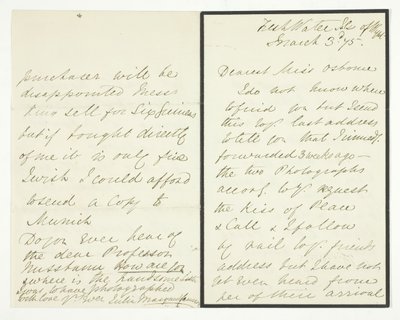 Fresh Water I. of W.
March 3d 75.
Dearest Miss Osborne
I do not know where
to find you but I send
this to yr last address
to tell you that I immedy.
forwarded 3 weeks ago —
the two Photographs
accorg. to yr request
the Kiss of Peace
& Call & I follow
by rail to yr friends
address but I have not
yet even heard from
her of their arrival
purchaser will be
disappointed These
sell for Six Guineas
but if bought directly
of me it is only five
I wish I could afford
to send a Copy to
Munich
Do you ever hear of
the dear Professor
Nussbaum How are you
& where is the handsome
I was to have photographed
with love Yr ever Julia Margaret